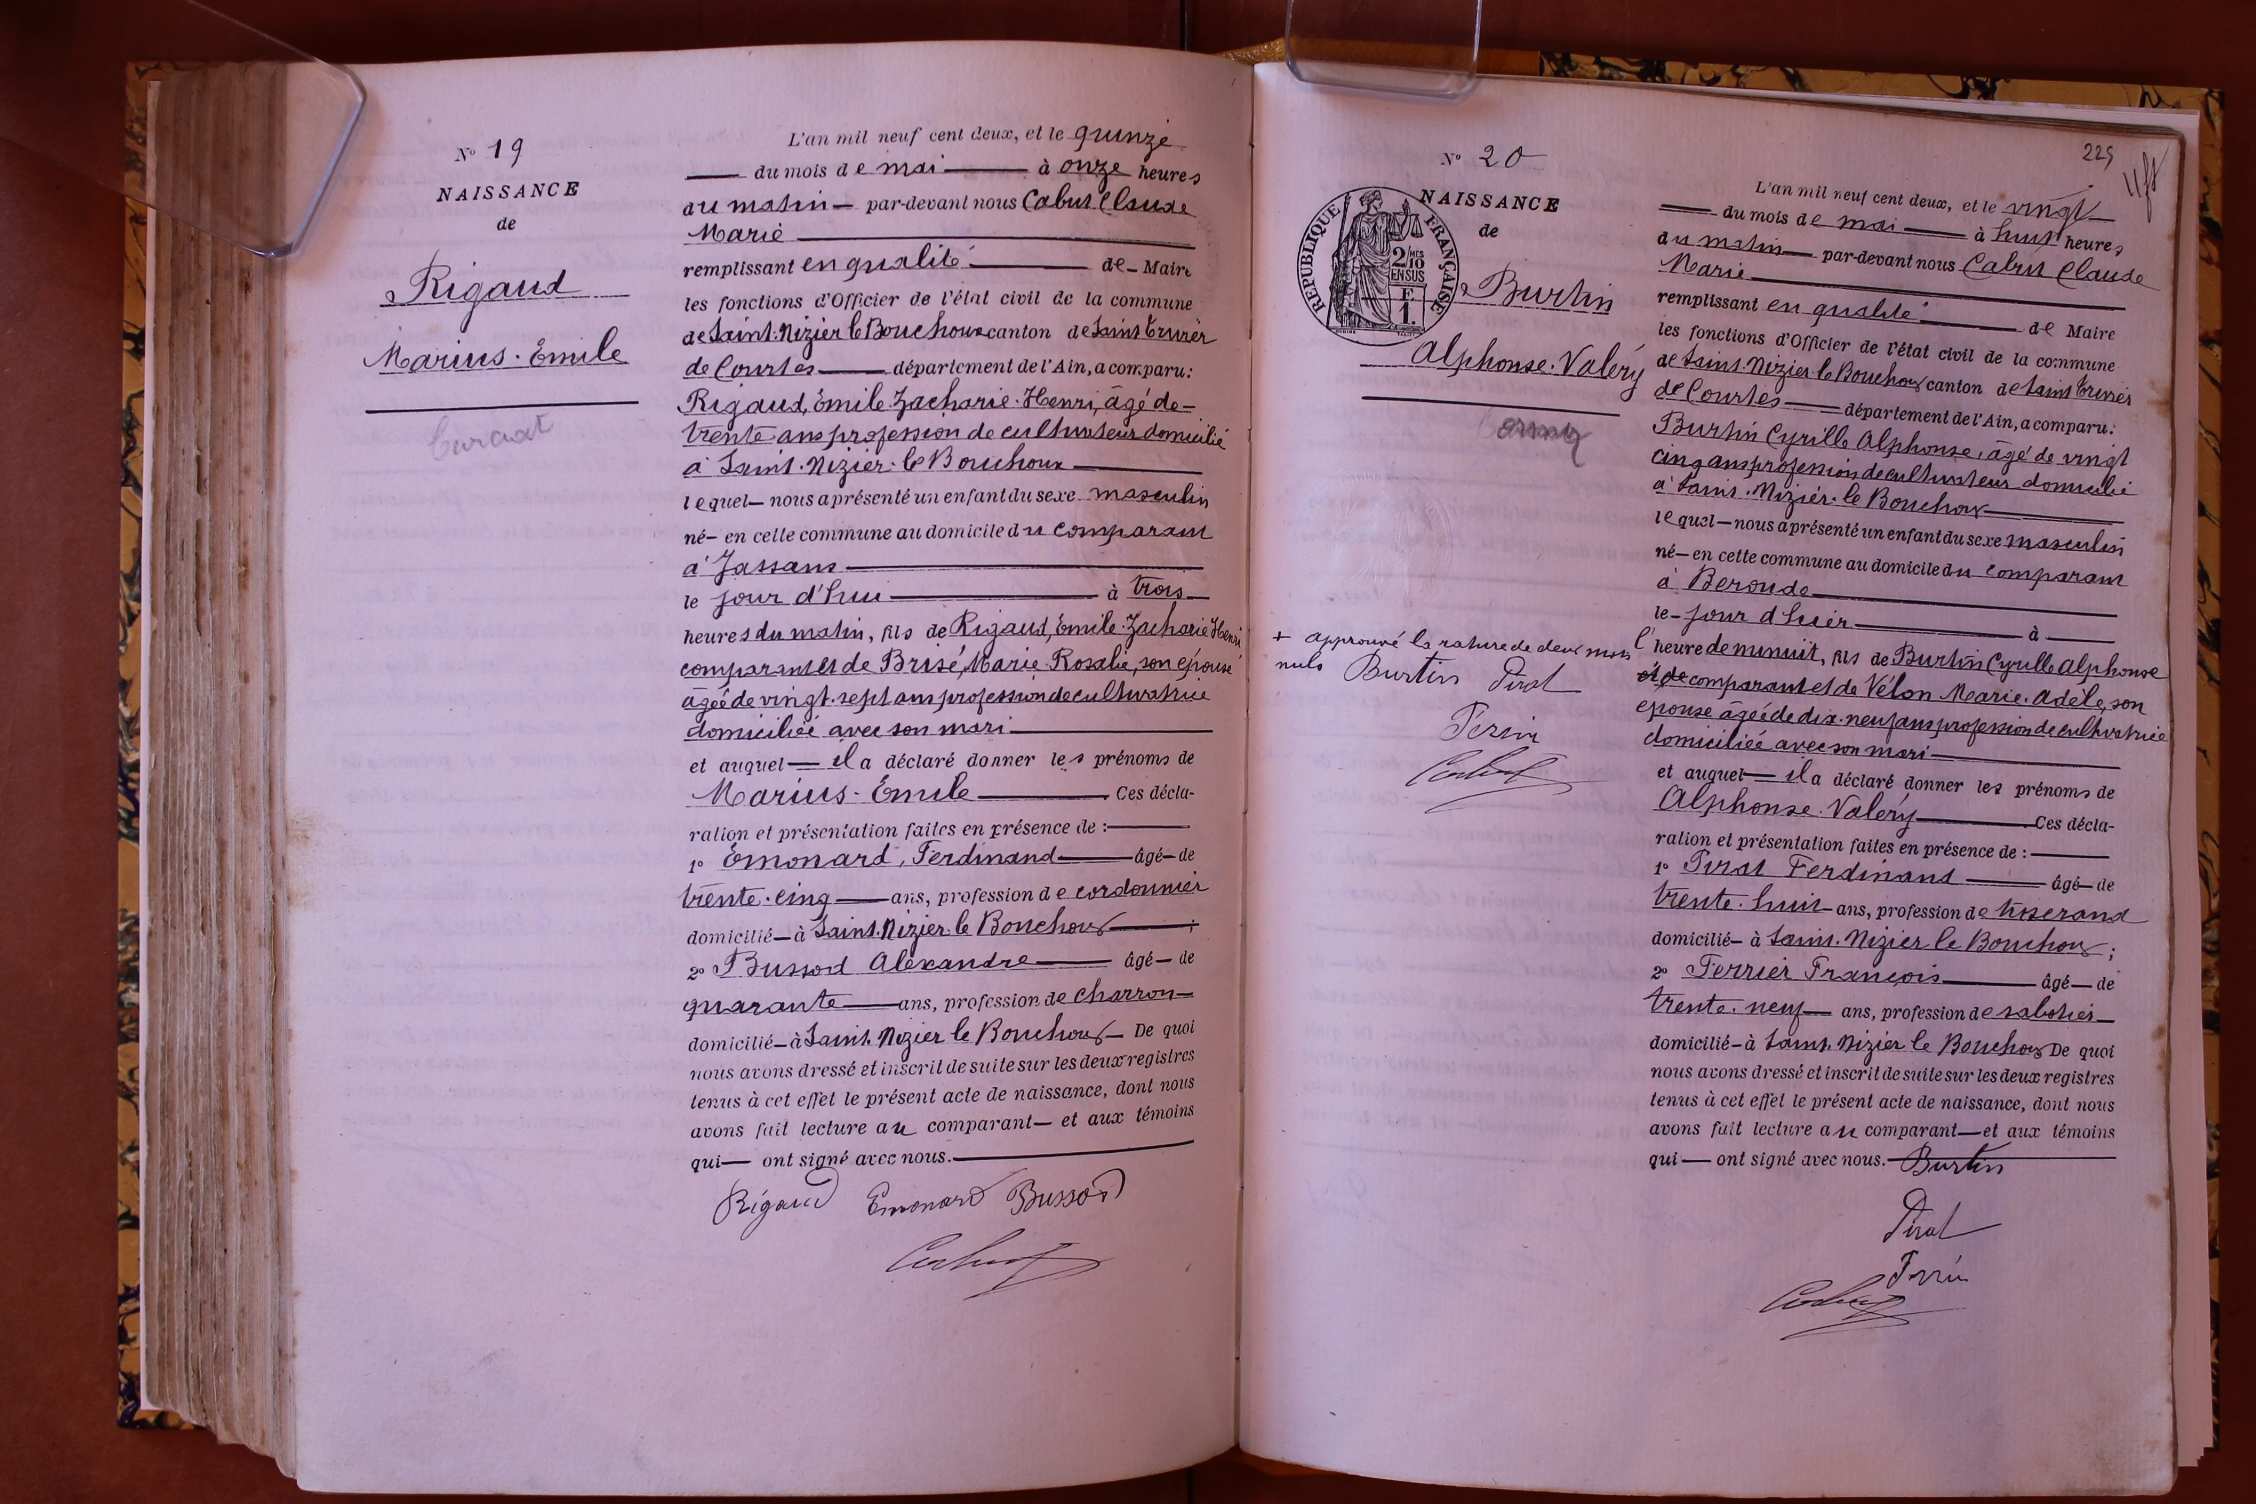 Nº 19
NAISSANCE
de
Rigaud
Marius. Émile
L'an mil neuf cent deux, et le quinze
du mois de mai à onze heures
du matin par-devant nous Cabut Claude
Marie
remplissant en qualité de Maire
les fonctions d'Officier de l'état civil de la commune
de Saint. Nizier le Bouchoux canton de Saint Trivier
de Courtes département de l'Ain, a comparu:
Rigaud, Émile Zacharie. Henri, âgé de
trente ans profession de cultivateur domicilié
à Saint. Nizier. le Bouchoux
lequel nous a présenté un enfant du sexe masculin
né en cette commune au domicile du comparant
à Jassans
le jour d'hui à trois
heures du matin, fils de Rigaud, Émile. Zacharie Henri
comparant et de Brisé, Marie Rosalie, son épouse
âgée de vingt. sept ans profession de cultivatrice
domiciliée avec son mari
et auquel il a déclaré donner les prénoms de
Marius. Émile Ces décla-
ration et présentation faites en présence de :
1º Émonard, Ferdinand âgé de
trente. cinq ans, profession de cordonnier
domicilié à Saint. Nizier. le Bouchoux ;
2º Bussod Alexandre âgé de
quarante ans, profession de charron
domicilié à Saint. Nizier le Bouchoux De quoi
nous avons dressé et inscrit de suite sur les deux registres
tenus à cet effet le présent acte de naissance, dont nous
avons fait lecture au comparant et aux témoins
qui ont signé avec nous.
Rigaud Emonard Bussod
Cabut
225
Nº 20
NAISSANCE
de
RÉPUBLIQUE FRANÇAISE
2/10
MES
EN SUS
F.
1.
Burtin
Alphonse. Valéry
+ approuvé la rature de deux mots
nuls Burtin Pirat
Ferrier
Cabut
L'an mil neuf cent deux, et le vingt
du mois de mai à huit heures
du matin par-devant nous Cabut Claude
Marie
remplissant en qualité de Maire
les fonctions d'Officier de l'état civil de la commune
de Saint. Nizier. le Bouchoux canton de Saint Trivier
de Courtes département de l'Ain, a comparu:
Burtin Cyrille Alphonse, âgé de vingt
cinq ans profession de cultivateur domicilié
à Saint. Nizier. le Bouchoux
lequel nous a présenté un enfant du sexe masculin
né en cette commune au domicile du comparant
à Beroude
le jour d'hier à
l'heure de minuit, fils de Burtin Cyrille Alphonse
et de comparant et de Vélon Marie. Adèle, son
épouse âgée de dix. neuf ans profession de cultivatrice
domiciliée avec son mari
et auquel il a déclaré donner les prénoms de
Alphonse. Valéry Ces décla-
ration et présentation faites en présence de :
1º Pirat Ferdinand âgé de
trente. huit ans, profession de tisserand
domicilié à Saint. Nizier le Bouchoux ;
2º Ferrier François âgé de
trente. neuf ans, profession de sabotier
domicilié à Saint. Nizier le Bouchoux De quoi
nous avons dressé et inscrit de suite sur les deux registres
tenus à cet effet le présent acte de naissance, dont nous
avons fait lecture au comparant et aux témoins
qui ont signé avec nous. Burtin
Pirat
Ferrier
Cabut